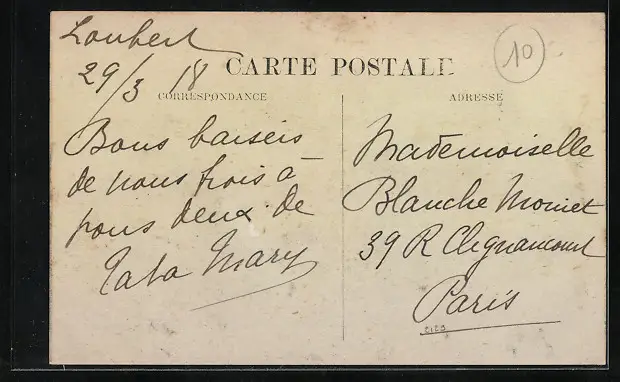 Loubert
29/3 18
CARTE POSTALE
10
CORRESPONDANCE
ADRESSE
Bons baisers
de nous trois à
vous deux de
Tata Mary
Mademoiselle
Blanche
39 R Clignancourt
Paris